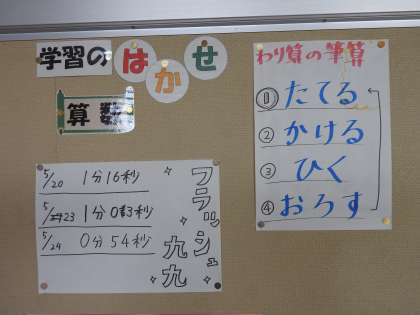 学習の はかせ
算数
わり算の筆算
① たてる
② かける
③ ひく
④ おろす
フラッシュ九九
5/20 1分16秒
5/23 1分03秒
5/24 0分54秒